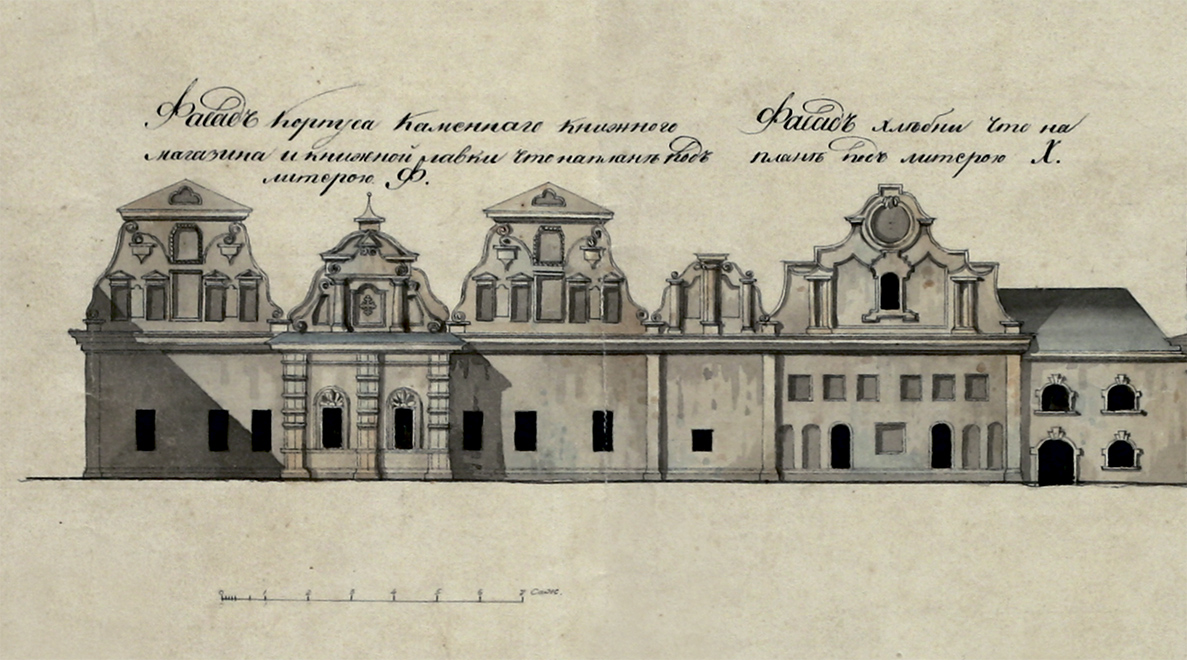 Фасадъ корпуса каменнаго книжного
магазина и книжной лавки что на планѣ подъ
литерою Ф.
Фасадъ хлѣбни что на
планѣ подъ литерою Х.
1 2 3 4 5 6 7 Саж.